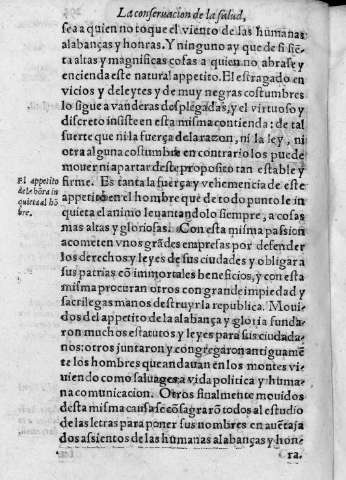 La conseruacion de la salud,
sea a quien no toque el viento de las humanas
alabanças y honras. Y ninguno ay que de si siē
ta altas y magnificas cosas a quien no abrase y
encienda este natural appetito. El estragado en
vicios y deleytes y de muy negras costumbres
lo sigue a vanderas desplegadas, y el virtuoso y
discreto insiste en esta misma contienda: de tal
suerte que ni la fuerça de la razon, ni la ley, ni
otra alguna costumbre en contrario los puede
mouer ni apartar deste proposito tan estable y
firme. Es tanta la fuerça y vehemencia de este
El appetito
de la hōra in
quieta al hō
bre.
appetito en el hombre que de todo punto le in
quieta el animo leuantandolo siempre, a cosas
mas altas y gloriosas. Con esta misma passion
acometen vnos grādes empresas por defender
los derechos y leyes de sus ciudades y obligar a
sus patrias cō immortales beneficios, y con esta
misma procuran otros con grande impiedad y
sacrilegas manos destruyr la republica. Moui-
dos del appetito de la alabança y gloria funda-
ron muchos estatutos y leyes para sus ciudada-
nos: otros juntaron y congregaron antiguamē
te los hombres que andauan en los montes vi-
uiendo como saluages a vida politica y huma-
na comunicacion. Otros finalmente mouidos
desta misma causa se cōsagrarō todos al estudio
de las letras para poner sus nombres en auētaja
dos assientos de las humanas alabanças y hon-
ra.